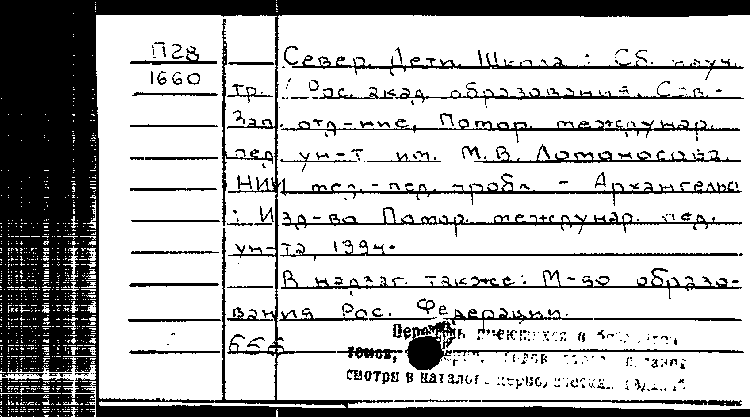 П28
1660
Север. Дети. Школа : Сб. науч.
тр. / Рос. акад. образования, Сев.-
Зап. отд-ние, Помор. междунар.
пед. ун-т им. М.В. Ломоносова.
НИИ пед. пробл. - Архангельс
: Изд-во Помор. междунар. пед.
ун-та, 1994.
В надзаг. также: М-во образо-
вания Рос. Федерации.
666
имеющихся в
томов,
смотри в каталоге